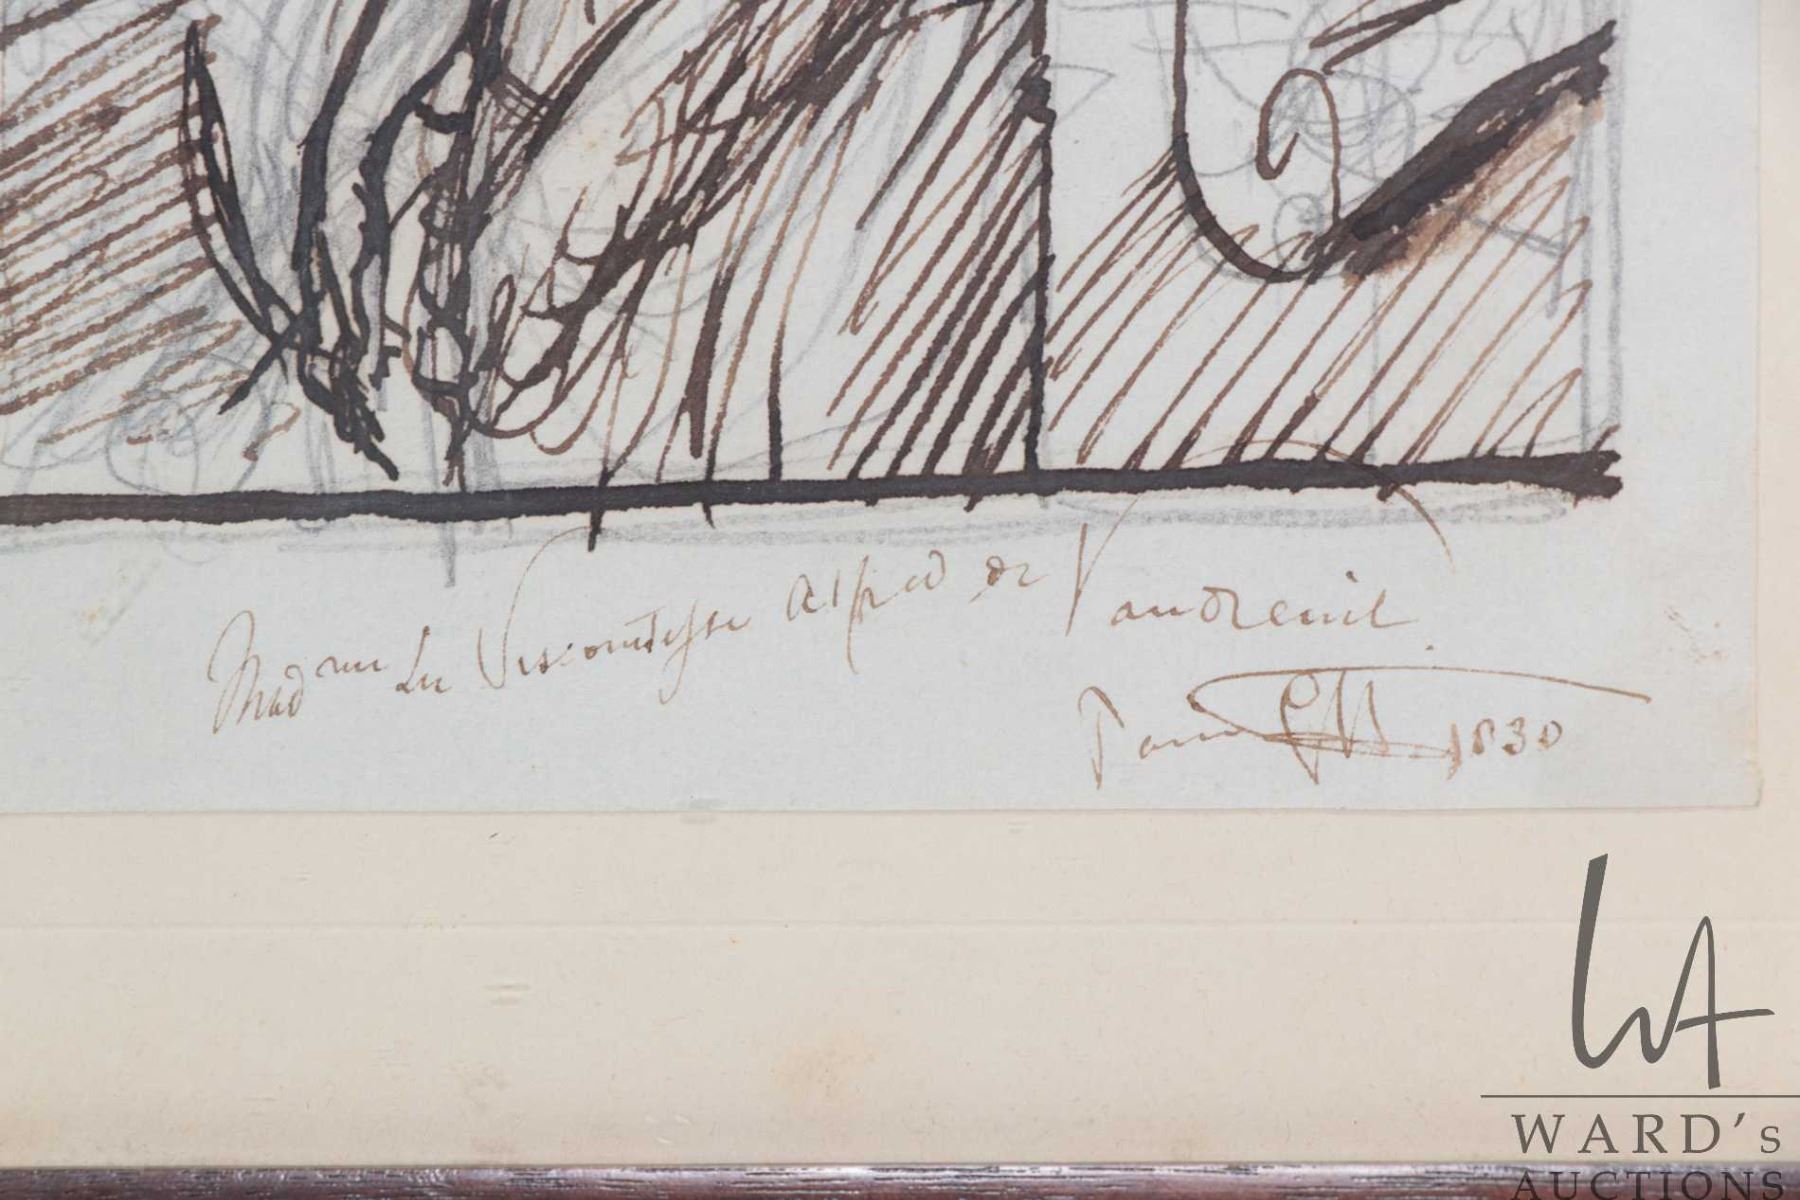 Mad^me La Viscomtesse Alfred de Vaudreuil.
Paris 1830
WARD's
AUCTIONS